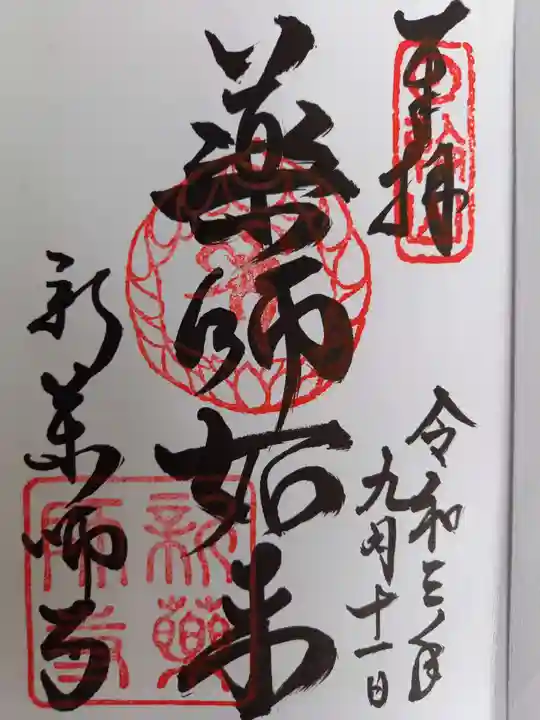 奉拝
令和三年
九月十一日
薬師如来
新薬師寺
新薬師寺